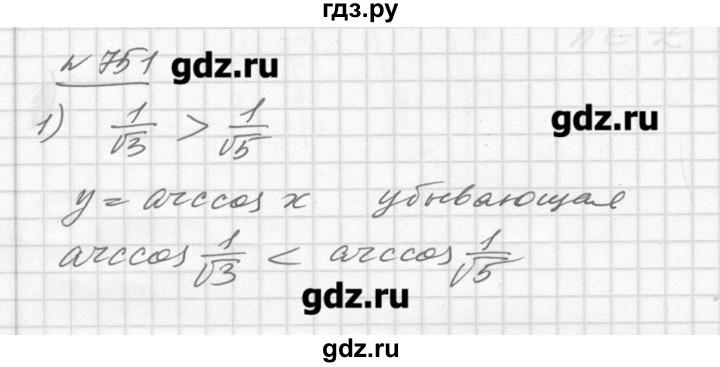 гдз.ру
n ∈ Z
№ 751 gdz.ru
1) 1/√3 > 1/√5 gdz.ru
y = arccos x убывающая
arccos 1/√3 < arccos 1/√5
gdz.ru
gdz.ru